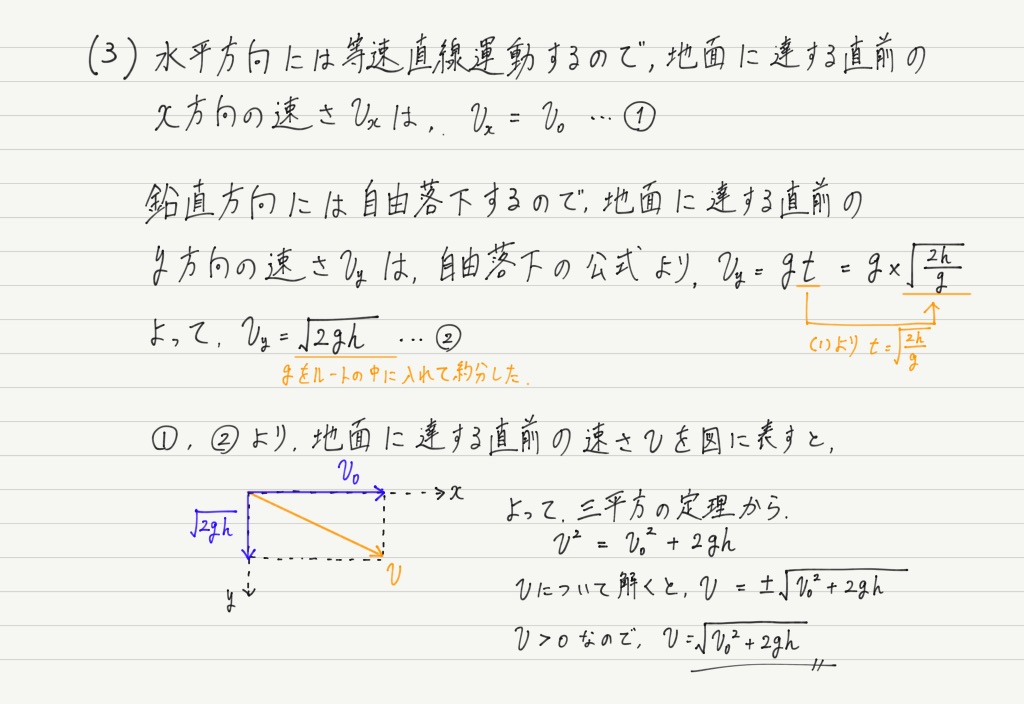 (3) 水平方向には等速直線運動するので, 地面に達する直前の
x方向の速さ Vx は, Vx = V₀ … ①
鉛直方向には自由落下するので, 地面に達する直前の
y方向の速さ Vy は, 自由落下の公式より, Vy = gt = g×√(2h/g)
(1)より t=√(2h/g)
よって, Vy = √(2gh) … ②
gをルートの中に入れて約分した.
①, ②より, 地面に達する直前の速さVを図に表すと,
V₀
x
√(2gh)
V
y
よって, 三平方の定理から,
V² = V₀² + 2gh
Vについて解くと, V = ±√(V₀² + 2gh)
V > 0 なので, V = √(V₀² + 2gh)